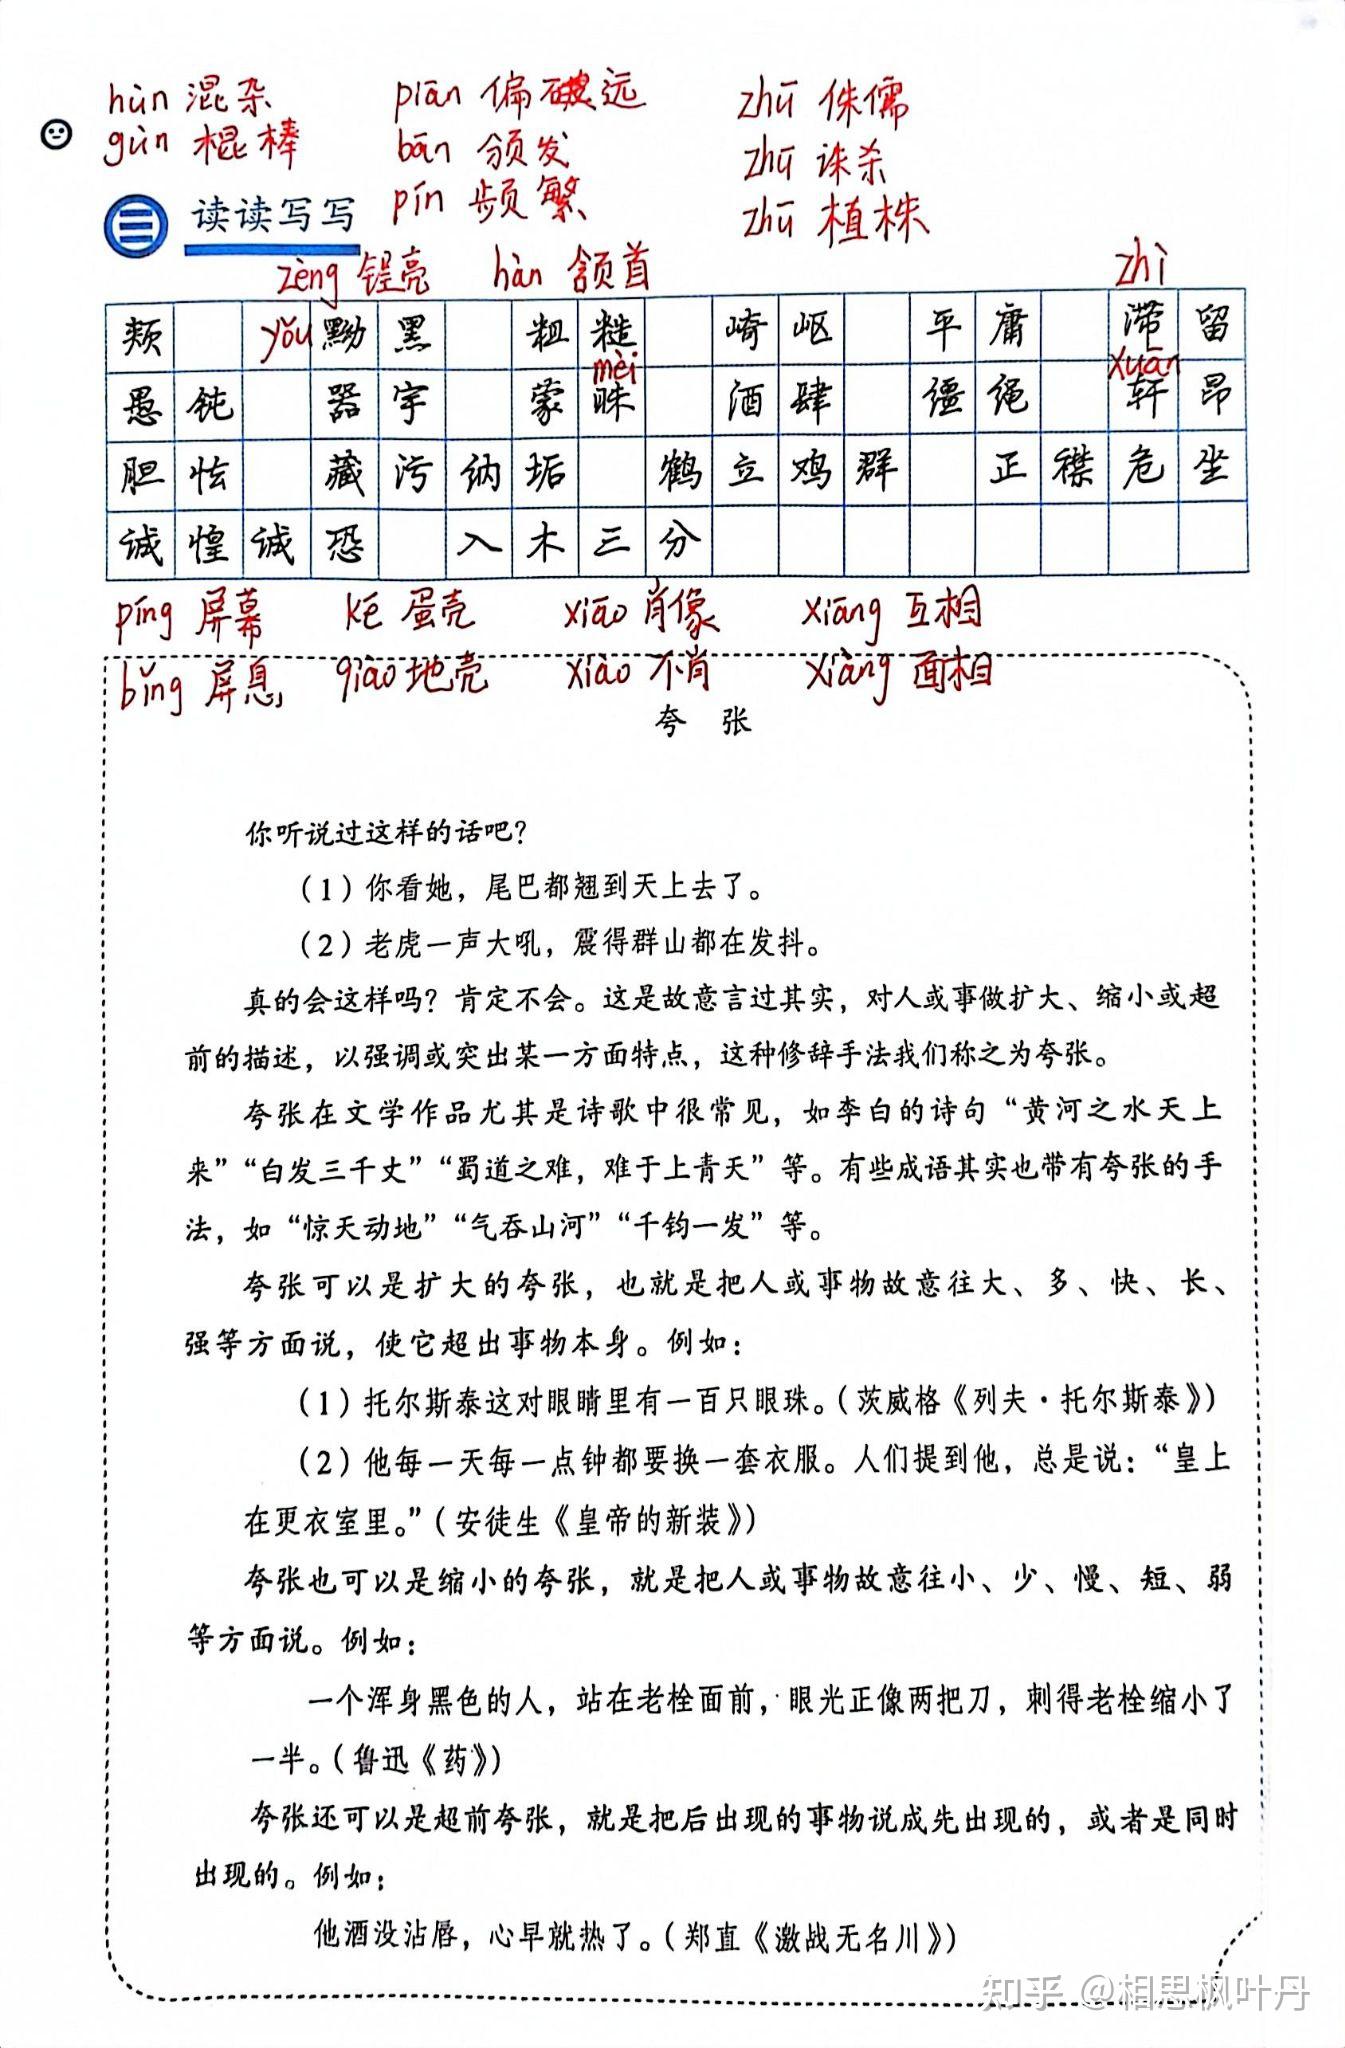 hùn 混杂 piān 偏远 zhū 侏儒
gùn 棍棒 bān 颁发 zhū 诛杀
pín 频繁 zhū 植株
读读写写
zèng 锃亮 hàn 颔首 zhì
颊 yǒu 黝黑 粗糙 崎岖 平庸 滞留
mèi xuān
愚钝 器宇 蒙昧 酒肆 缰绳 轩昂
胆怯 藏污纳垢 鹤立鸡群 正襟危坐
诚惶诚恐 入木三分
píng 屏幕 ké 蛋壳 xiāo 肖像 xiāng 互相
bǐng 屏息 qiào 地壳 xiào 不肖 xiàng 面相
夸 张
你听说过这样的话吧？
（1）你看她，尾巴都翘到天上去了。
（2）老虎一声大吼，震得群山都在发抖。
真的会这样吗？肯定不会。这是故意言过其实，对人或事做扩大、缩小或超
前的描述，以强调或突出某一方面特点，这种修辞手法我们称之为夸张。
夸张在文学作品尤其是诗歌中很常见，如李白的诗句“黄河之水天上
来”“白发三千丈”“蜀道之难，难于上青天”等。有些成语其实也带有夸张的手
法，如“惊天动地”“气吞山河”“千钧一发”等。
夸张可以是扩大的夸张，也就是把人或事物故意往大、多、快、长、
强等方面说，使它超出事物本身。例如：
（1）托尔斯泰这对眼睛里有一百只眼珠。（茨威格《列夫·托尔斯泰》）
（2）他每一天每一点钟都要换一套衣服。人们提到他，总是说：“皇上
在更衣室里。”（安徒生《皇帝的新装》）
夸张也可以是缩小的夸张，就是把人或事物故意往小、少、慢、短、弱
等方面说。例如：
一个浑身黑色的人，站在老栓面前，眼光正像两把刀，刺得老栓缩小了
一半。（鲁迅《药》）
夸张还可以是超前夸张，就是把后出现的事物说成先出现的，或者是同时
出现的。例如：
他酒没沾唇，心早就热了。（郑直《激战无名川》）
知乎 @相思枫叶丹